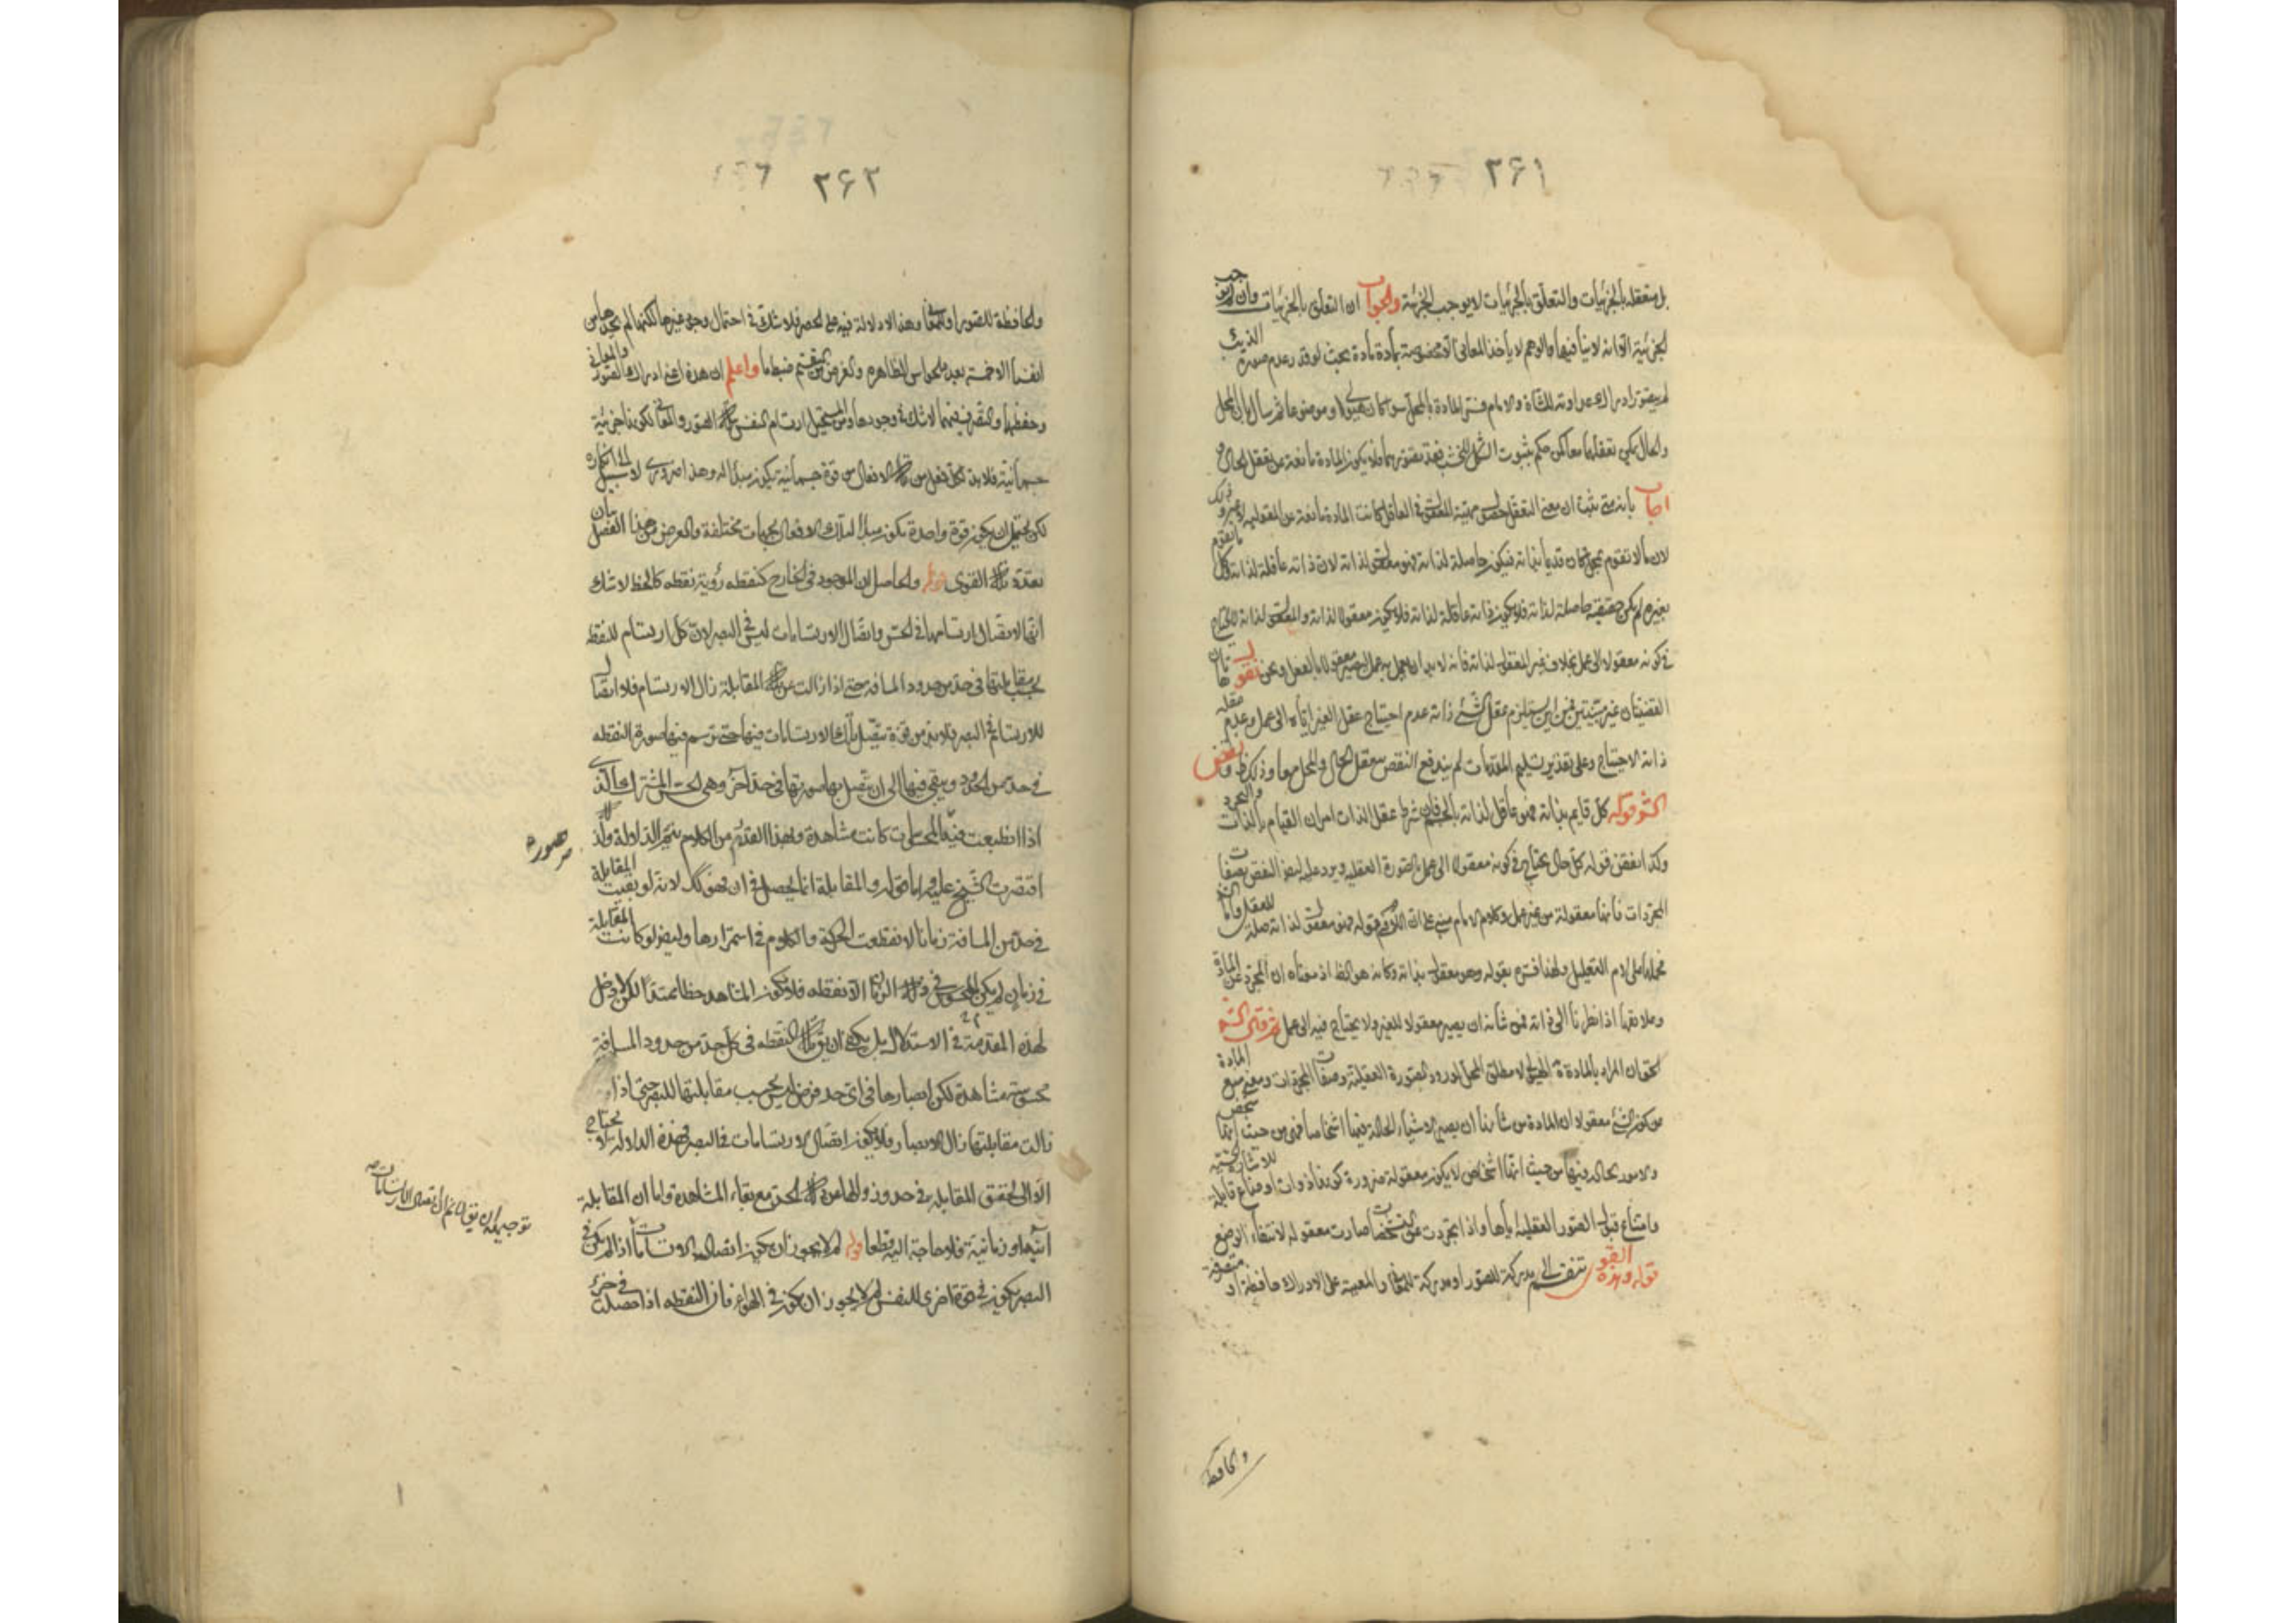 ٢۶١
بل متعقله بالجزئيات والتعلق بالجزئيات لا يوجب الجزئية والجواب ان التعلق بالجزئيات وان لم يوجب
الجزئية الا انه لا ينافيها والوهم لا يأخذ المعانى الا مخصوصة بمادة مادة بحيث لو قدر عدم صورة الذئب
لم يتصور ادراك عداوته للشاة والامام فسر المادة بالمحل سواء كان هيولى او موضوعا ثم سأل بان المحل
والحال يمكن تعقلهما معا لكن حكم بثبوت الشكل للخشب فقد تصورهما فلا يكون المادة مانعة عن تعقل الحال
اجاب بانه متى ثبت ان معنى التعقل حصول مهية المعقول فى العاقل كانت المادة مانعة من المعقولية
لان ما لا تقوم بمحل كان قديما بذاته فيكون حاصلة لذاته فهو معقول لذاته لان ذاته عاقلة لذاته وكل ما تقوم
بغيره لم يكن حقيقته حاصلة لذاته فلا يكون ذاته عاقلة لذاته فلا يكون معقولا لذاته والمعقول لذاته لا يحتاج
فى كونه معقولا الى عمل بخلاف غير المعقول لذاته فانه لا بد ان يعمل به عمل ليصير معقولا بالفعل ونحن نقول هاتان
القضيتان غير مبينتين فمن اين يستلزم عقل الشئ ذاته عدم احتياج عقل الغير اياه الى عمل وعدم عقله
ذاته الاحتياج وعلى تقدير تسليم المقدمات لم يندفع النقض بتعقل الحال والمحل معا وذلك ظ ونقض
الش قوله كل قايم بذاته فهو عاقل لذاته بالجسم فان شرط عقل الذات امران القيام بالذات والتجرد
وكذا نقض قوله كل حال يحتاج فى كونه معقولا الى عمل بالصورة العقلية ويرد عليه ايضا النقض بصفات
المجردات فانها معقولة من غير عمل وكلام الامام مبنى على ان اللام فى قوله فهو معقول لذاته صلة للعقل واما الش
فحملها على لام التعليل ولهذا فسره بقوله وهو معقول بذاته وكانه هو الظ اذ معناه ان المجرد عن المادة
وعلائقها اذا نظرنا الى ذاته فمن شأنه ان يصير معقولا للغير ولا يحتاج فيه الى عمل ثم قال الش
الحق ان المراد بالمادة الهيولى لا مطلق المحل لورود الصورة العقلية وصفات المجردات ومعنى منع المادة
من كون الشئ معقولا ان المادة من شأنها ان يصير الاشياء الحالة فيها اشخاصا فهى من حيث انها شخص
والامور الحالة فيها من حيث انها اشخاص لا يكون معقولة ضرورة كونها ذوات اوضاع قابلة للاشارة الحسية
وامتناع قبول الصور العقلية اياها واذا تجردت عن التشخصات صارت معقولة لانتفاء الوضع
قوله وهذه القوى تنقسم الى مدركة للصور او مدركة للمعانى والمعينة على الادراك حافظة او متصرفة
والحافظة
٢۶٢
والحافظة للصور او للمعانى وهذا لا دلالة فيه على الحصر فلا شك فى احتمال وجود غيرها لكنها لم نجد من
انفسنا الا خمسة بعد الحواس الظاهره والغرض من التقسيم ضبطها واعلم ان هذه اعنى ادراك الصور والمعانى
وحفظها والتصرف فيهما لا شك فى وجودها ومن المستحيل ارتسام النفس بتلك الصور والمعانى لكونها جزئية
جسمانية فلا بد لكل فعل من تلك الافعال من قوة جسمانية تكون مبدأ له وهذا ضرورى لا سبيل الى انكاره
لكن يحتمل ان يكون قوة واحدة تكون مبدأ لتلك الافعال بجهات مختلفة والغرض من هذا الفصل بيان
تعدد تلك القوى قوله والحاصل ان الموجود فى الخارج كنقطه رؤية نقطه كالخط لا شك
انها لاتصال ارتسامها فى الحس واتصال الارتسامات ليس فى البصر لان كل ارتسام للنقطه
بحسب مقابلتها فى حد من حدود المسافه حتى اذا زالت عن تلك المقابلة زال الارتسام فلا اتصال
للارتسام فى البصر فلا بد من قوة تتصل تلك الارتسامات فيها حتى ترتسم فيها صورة النقطه
فى حد من الحدود ويبقى فيها الى ان يتصل بها صورتها فى حد آخر وهى الحس المشترك الذى
اذا انطبعت فيه المحسوسات كانت مشاهدة وبهذا القدر من الكلام يتم الدلالة ولذلك
صوره
اقتصرت الشيخ عليه واما قوله والمقابلة انما يحصل فى ان فهو كك لانه لو بقيت المقابلة
فى حد من المسافة زمانا لانقطعت الحركة والكلام فى استمرارها وايضا لو كانت المقابلة
فى زمان لم يكن المحسوس فى ذلك الزمان الا نقطه فلا يكون المشاهد خطا ممتدا لكن لا دخل
لهذه المقدمة فى الاستدلال بل يكفى ان يق تلك النقطه فى كل حد من حدود المسافة
محسوسة مشاهدة لكن ابصارها فى اى حد فرض ليس بحسب مقابلتها للبصر حتى اذا
زالت مقابلتها زال الابصار فلا يكون اتصال الارتسامات فى البصر فهذه الدلالة لا يحتاج
الا الى تحقق المقابلة فى حدود زوالها عن تلك الحق مع بقاء المشاهدة واما ان المقابلة
آنية او زمانية فلا حاجة اليه قطعا قوله لم لا يجوز ان يكون اتصال الارتسامات اذا لم يكن فى
البصر يكون فى قوة اخرى للنفس لم لا يجوز ان يكون فى الهواء فان النقطه اذا حصلت فى جزء
توجيهه ان يق لا نم ان اتصال الارتسامات